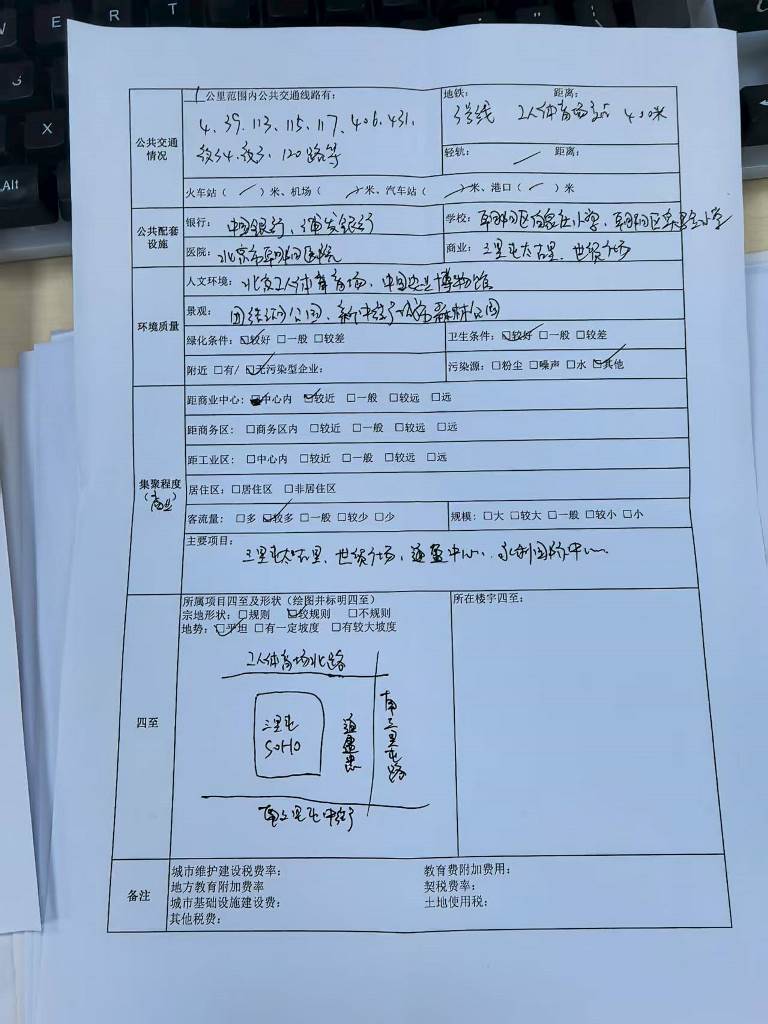 E R T
X
Alt
1 公里范围内公共交通线路有:
4、39、113、115、117、406、431、
夜34、夜3、120路等
地铁: 距离:
3号线 工人体育场站 400米
公共交通
情况
轻轨: 距离:
火车站( )米、机场( )米、汽车站( )米、港口( )米
公共配套
设施
银行: 中国银行、浦发银行
学校: 朝阳区白家庄小学、朝阳区实验小学
医院: 北京市朝阳医院
商业: 三里屯太古里、世贸广场
环境质量
人文环境: 北京工人体育场、中国农业博物馆
景观: 团结湖公园、
绿化条件: ☑较好 □一般 □较差
卫生条件: ☑较好 □一般 □较差
附近 □有/ ☑无污染型企业:
污染源: □粉尘 □噪声 □水 ☑其他
集聚程度
(商业)
距商业中心: 中心内 ☑较近 □一般 □较远 □远
距商务区: □商务区内 □较近 □一般 □较远 □远
距工业区: □中心内 □较近 □一般 □较远 □远
居住区: □居住区 □非居住区
客流量: □多 ☑较多 □一般 □较少 □少
规模: □大 □较大 □一般 □较小 □小
主要项目:
三里屯太古里、世贸广场、通盈中心、永利国际中心
四至
所属项目四至及形状(绘图并标明四至)
宗地形状: □规则 ☑较规则 □不规则
地势: ☑平坦 □有一定坡度 □有较大坡度
所在楼宇四至:
工人体育场北路
三里屯
SOHO
南三里屯路
备注
城市维护建设税费率: 教育费附加费用:
地方教育附加费率 契税费率:
城市基础设施建设费: 土地使用税:
其他税费: